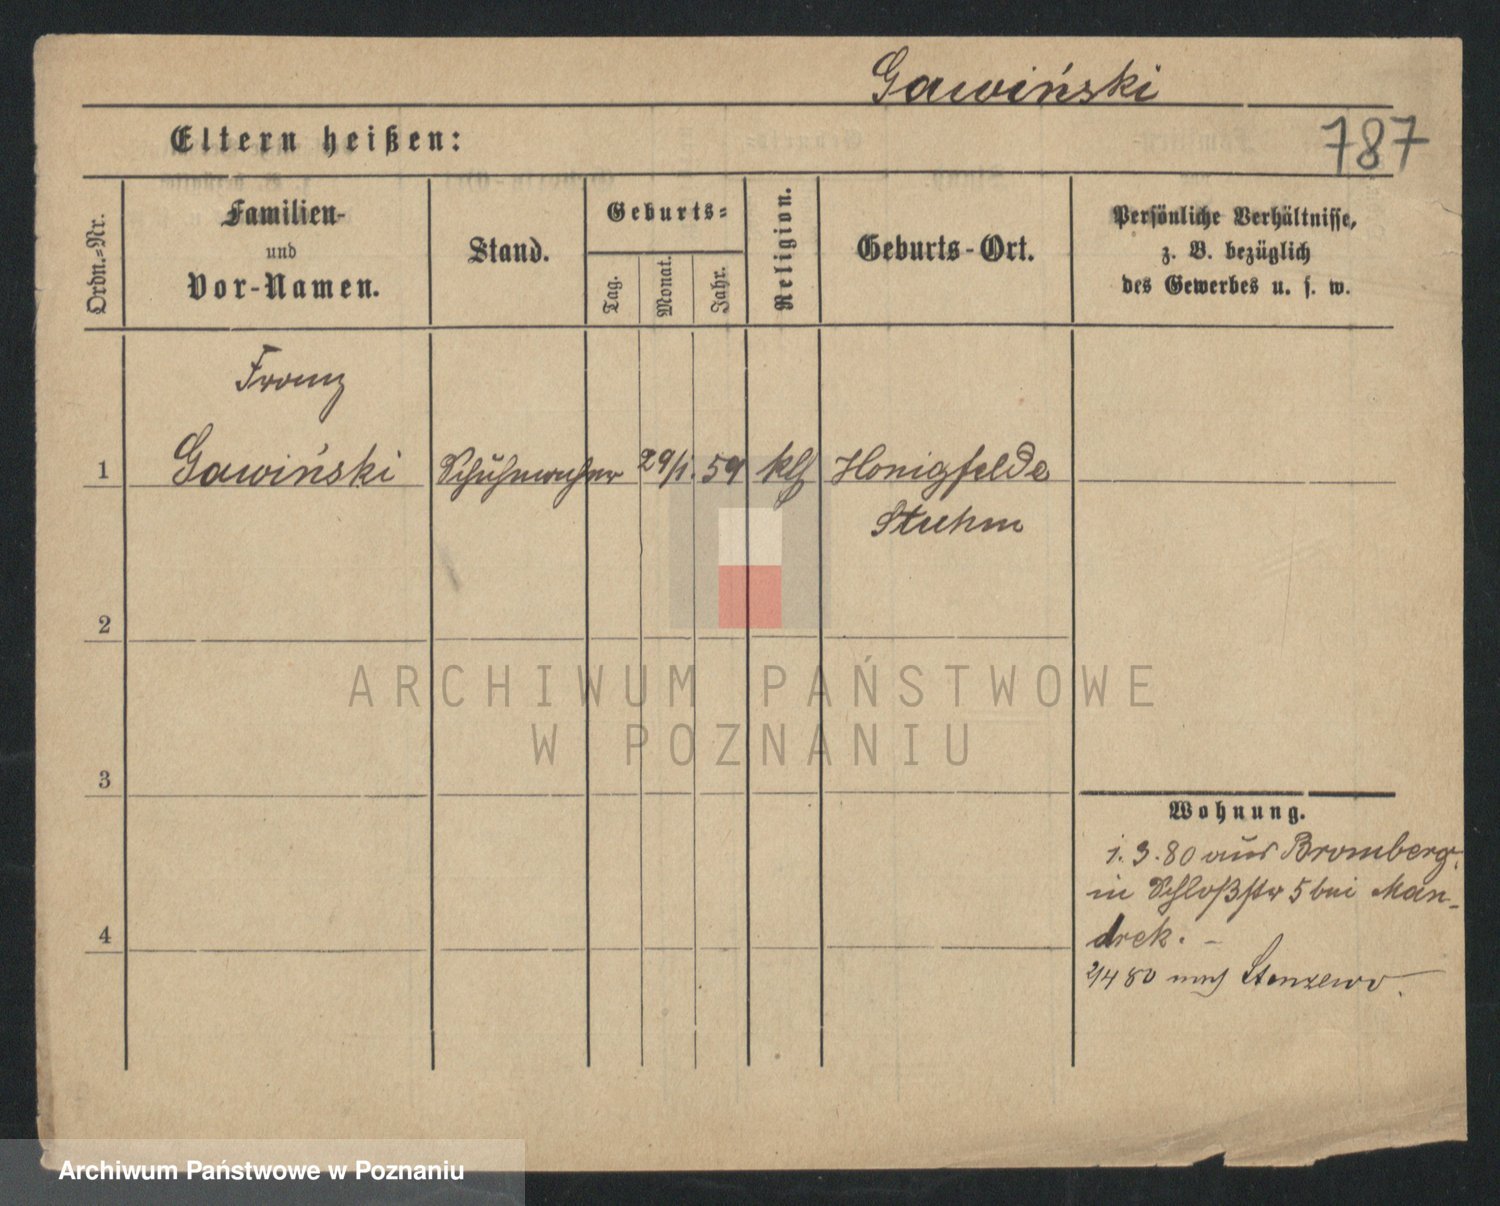 Gawiński
787
Eltern heißen:
Ordn.-Nr.
Familien-
und
Vor-Namen.
Stand.
Geburts-
Tag.
Monat.
Jahr.
Religion.
Geburts-Ort.
Persönliche Verhältnisse,
z. B. bezüglich
des Gewerbes u. s. w.
Franz
1 Gawiński Schuhmacher 29/1. 59 klh Honigfelde
Stuhm
2
3
4
Wohnung.
1. 3. 80 aus Bromberg.
in Schloßstr 5 bei Man-
drek. -
2/4 80 nach Stenzewo.
ARCHIWUM PAŃSTWOWE
W POZNANIU
Archiwum Państwowe w Poznaniu